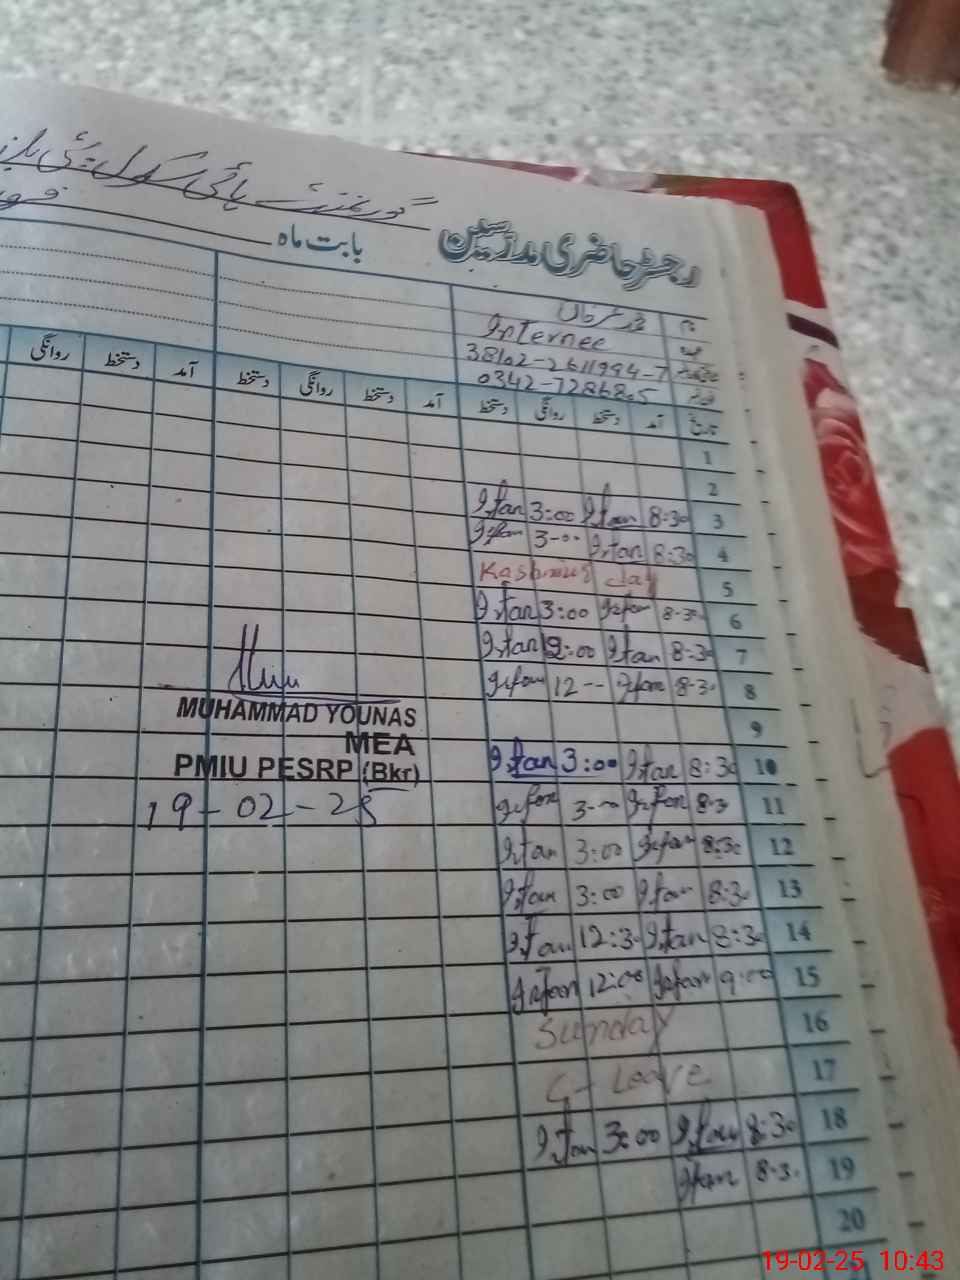 گورنمنٹ ہائی سکول
رجسٹر حاضری مدرسین بابت ماہ
نام
Internee
38102-2611994-7
0342-7286805
تاریخ آمد دستخط روانگی دستخط آمد دستخط روانگی دستخط آمد دستخط روانگی
1
2
3 8:30 Irfan 3:00 Irfan
4 8:30 Irfan 3-00 Irfan
5 Kashmir day
6 8-30 Irfan 3:00 Irfan
7 8:30 Irfan 12:00 Irfan
8 8-30 Irfan 12-- Irfan
9
10 8:30 Irfan 3:00 Irfan
11 8-3 Irfan 3-00 Irfan
12 8:30 Irfan 3:00 Irfan
13 8:30 Irfan 3:00 Irfan
14 8:30 Irfan 12:30 Irfan
15 9:00 Irfan 12:00 Irfan
16 Sunday
17 Leave
18 8:30 Irfan 3:00 Irfan
19 8-30 Irfan
20
MUHAMMAD YOUNAS
MEA
PMIU PESRP (Bkr)
19-02-25
19-02-25 10:43